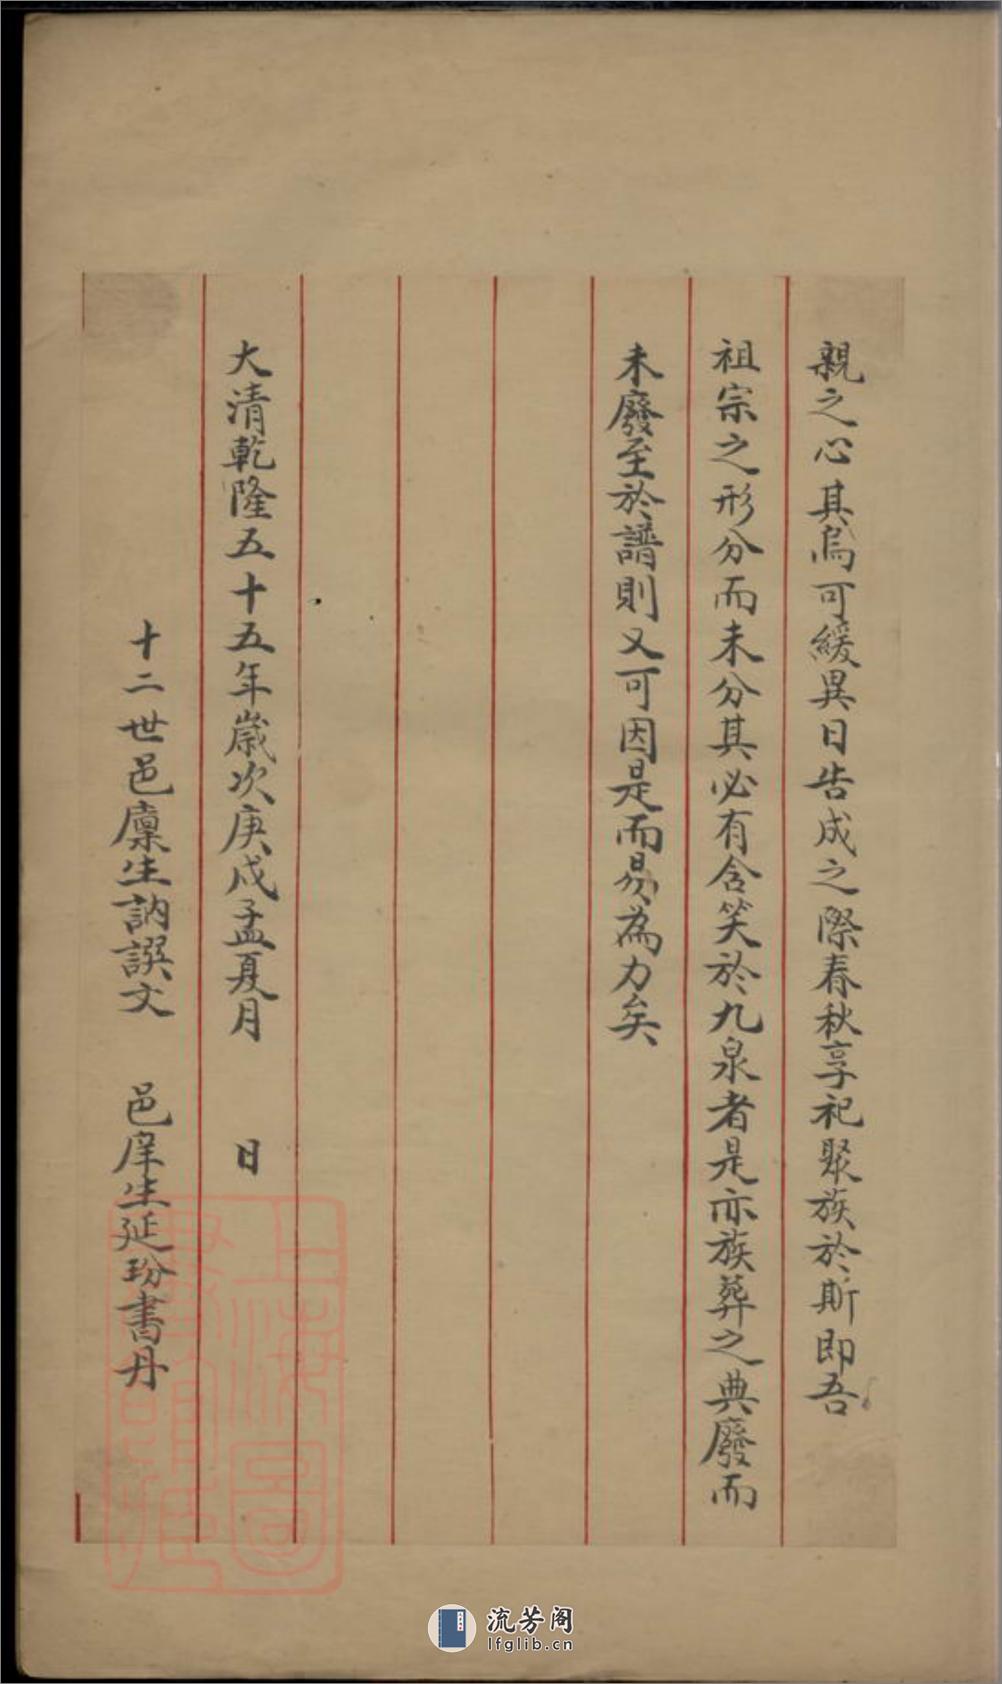 親之心其烏可緩異日告成之際春秋享祀聚族於斯即吾
祖宗之形分而未分其必有含笑於九泉者是亦族葬之典廢而
未廢至於譜則又可因是而易為力矣
大清乾隆五十五年歲次庚戌孟夏月 日
十二世邑廩生訥譔文 邑庠生延玢書丹
上海圖
書館藏
流芳阁
lfglib.cn